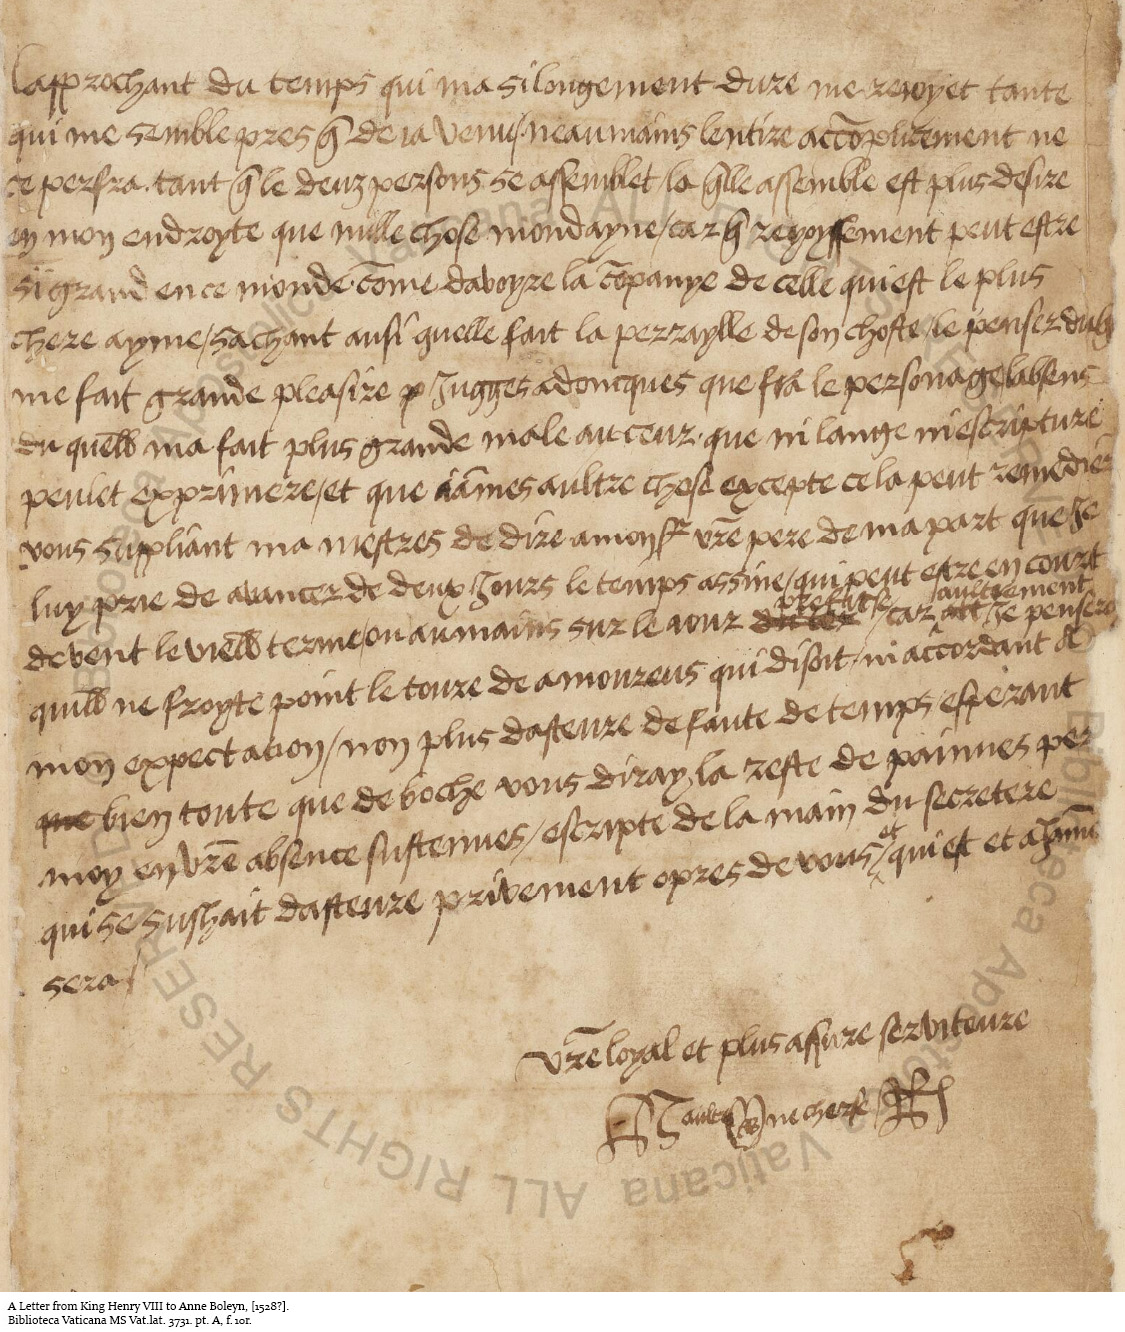 Lapprochant du temps qui ma si longement dure me reioyet tante
qui me semble pres q̃ de ia venu / neaumains lentire accõplicement ne
ce perfra . tant q̃ le deuz persons se assemblet / la q̃lle assemble est plus desire
en mon endroyte que nulle chose mondayne / car q̃ reioyssement peut estre
si grand en ce monde cõme davoyre la cõpanye de celle qui est le plus
chere ayme / sachant ausi quelle fait la perraylle de son choste / le penser du
me fait grande pleasire Jugges adoncques que fra le personage labsens
du quell ma fait plus grande male au ceur que ni lange ni escripture
peulet exprimere / et que iãmes aultre chose excepte cela peut remedier
vous suppliant ma mestres de dire a monsr vre pere de ma part que Je
luy prie de avancer de deux Jours le temps assine / qui peut estre en court
devent le viell terme / ou aumains sur le iour prefixe / car aultrement Je penseroy
quill ne froyte point le toure de amoureus qui disoit / ni accordant a
mon expectation / non plus dasteure de faute de temps esperant
bien toute que de boche vous diray la reste de painnes per
moy en vre absence sustennes / escripte de la main du secretere
qui se sushait dasteure privement opres de vous / et qui est et a
sera /
vre loyal et plus assure serviteure
H aultre ne cherse R
A Letter from King Henry VIII to Anne Boleyn, [1528?].
Biblioteca Vaticana MS Vat.lat. 3731. pt. A, f. 10r.
© Biblioteca Apostolica Vaticana ALL RIGHTS RESERVED
© Biblioteca Apostolica Vaticana ALL RIGHTS RESERVED